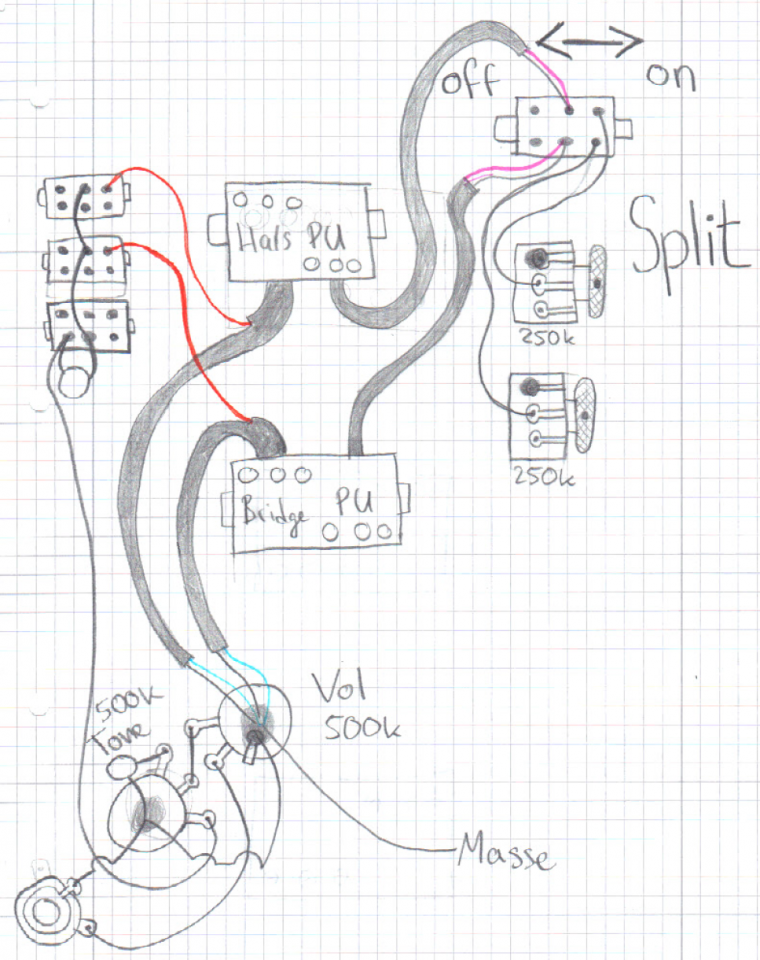 off
on
Hals PU
Split
250k
250k
Bridge PU
Vol
500k
500k
Tone
Masse